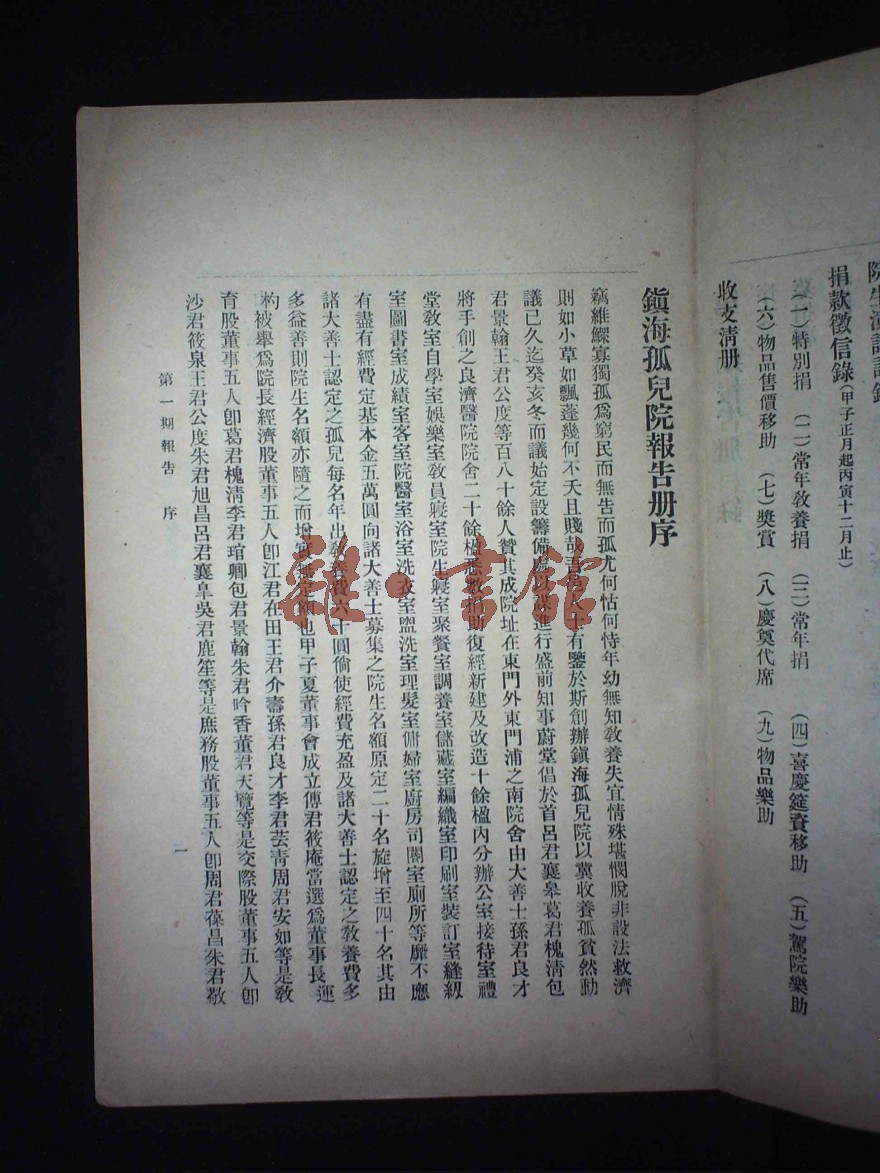 院生演說詞錄
捐款徵信錄(甲子正月起丙寅十二月止)
(一)特別捐 (二)常年教養捐 (三)常年捐 (四)喜慶筵資移助 (五)駕院樂助
(六)物品售價移助 (七)獎賞 (八)慶奠代席 (九)物品樂助
收支清册
鎭海孤兒院報告册序
竊維鰥寡獨孤爲窮民而無告而孤尤何怙何恃年幼無知敎養失宜情殊堪憫脫非設法救濟
則如小草如飄蓬幾何不夭且賤哉吾邑人士有鑒於斯創辦鎭海孤兒院以冀收養孤貧然動
議已久迄癸亥冬而議始定設籌備處以謀進行盛前知事蔚堂倡於首呂君襄皋葛君槐淸包
君景翰王君公度等百八十餘人贊其成院址在東門外東門浦之南院舍由大善士孫君良才
將手創之良濟醫院院舍二十餘楹悉數捐助復經新建及改造十餘楹內分辦公室接待室禮
堂敎室自學室娛樂室敎員寢室院生寢室聚餐室調養室儲藏室編織室印刷室裝訂室縫紉
室圖書室成績室客室院醫室浴室洗衣室盥洗室理髮室傭婦室廚房司閽室廁所等靡不應
有盡有經費定基本金五萬圓向諸大善士募集之院生名額原定二十名旋增至四十名其由
諸大善士認定之孤兒每名年出敎養費六十圓倘使經費充盈及諸大善士認定之敎養費多
多益善則院生名額亦隨之而增實無定額也甲子夏董事會成立傅君筱庵當選爲董事長運
杓被舉爲院長經濟股董事五人卽江君在田王君介壽孫君良才李君芸靑周君安如等是敎
育股董事五人卽葛君槐淸李君琯卿包君景翰朱君吟香董君天覽等是交際股董事五人卽
沙君筱泉王君公度朱君旭昌呂君襄阜吳君鹿笙等是庶務股董事五人卽周君葆昌朱君敬
第一期報告 序
一
雜·書館